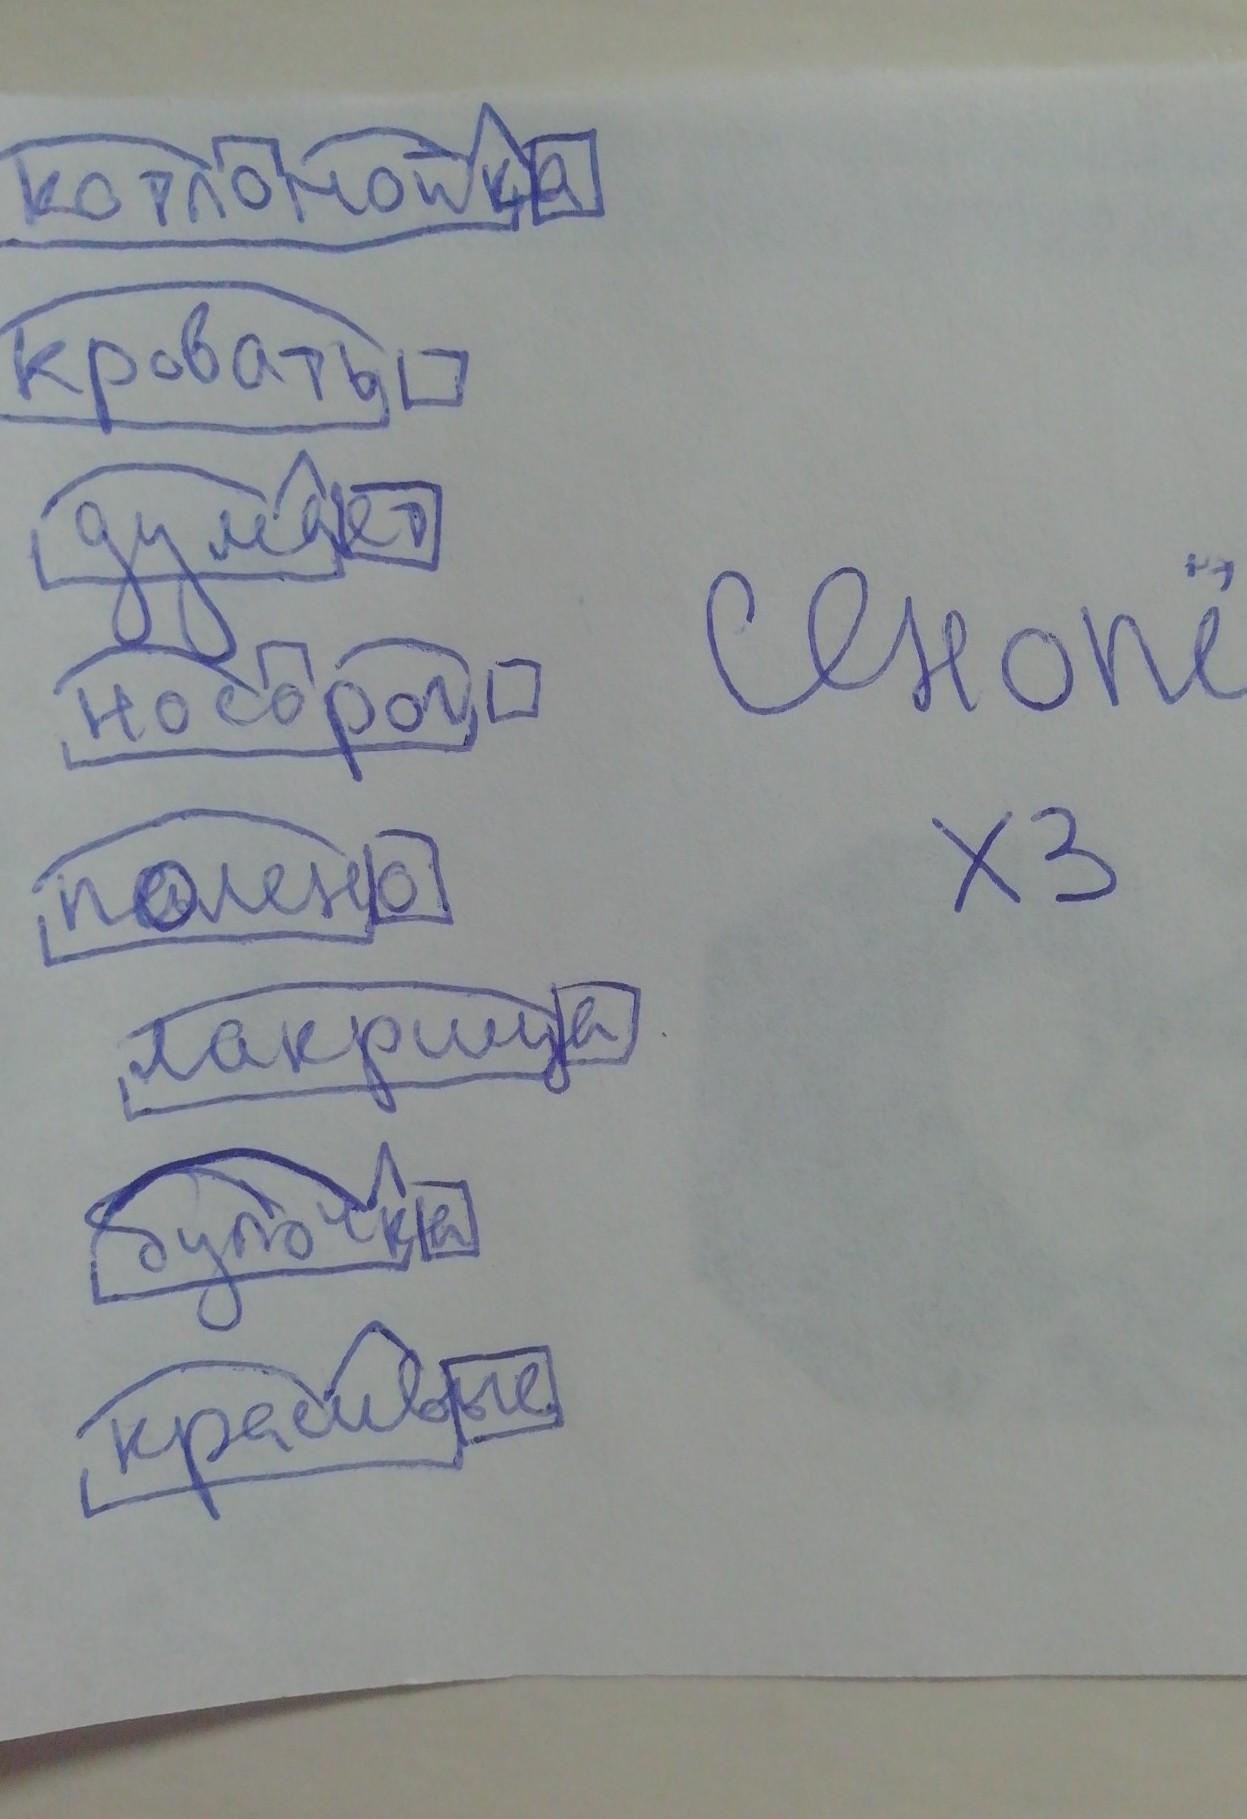 котломойка
кровать
думает
носорог
полено
лакрица
булочка
красивые
сенопё
х3